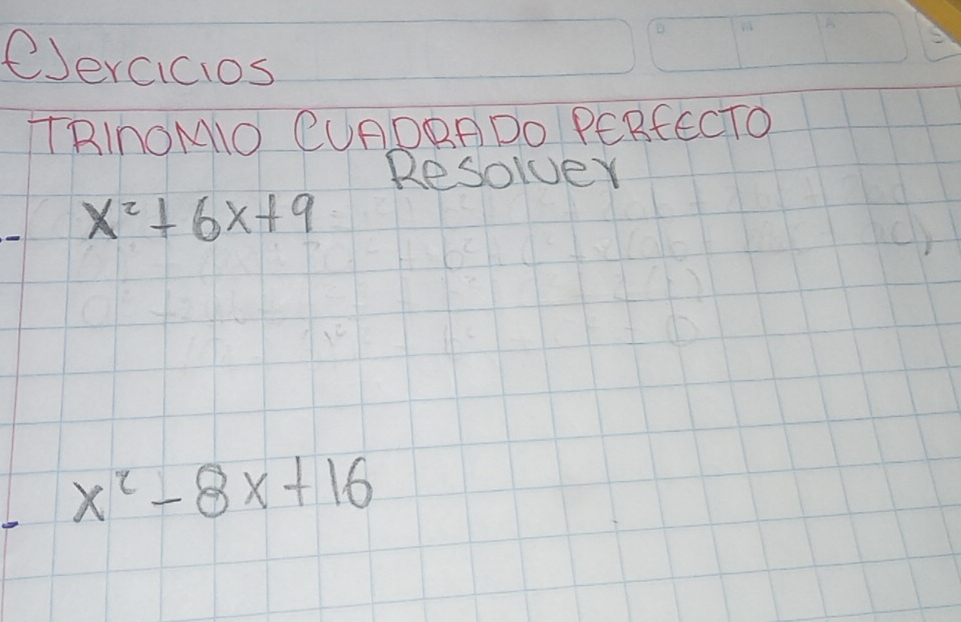 Ejercicios
TRINOMIO CUADRADO PERFECTO
Resolver
- x² + 6x + 9
- x² - 8x + 16